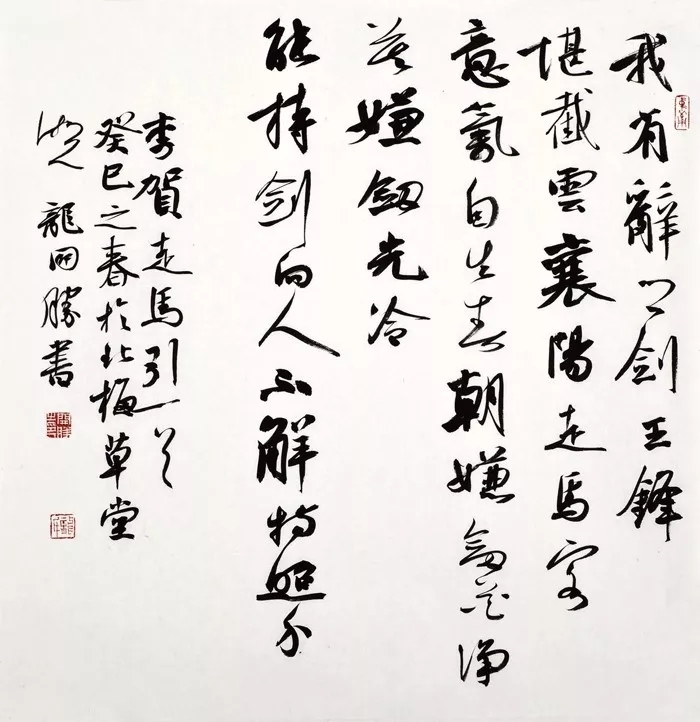 我有辭鄉劍玉鋒
堪截雲襄陽走馬客
意氣自生春朝嫌劍花淨
莫嫌劍光冷
能持劍向人不解持照身
李賀走馬引一首
癸巳之春於北梅草堂
湖人龍開勝書